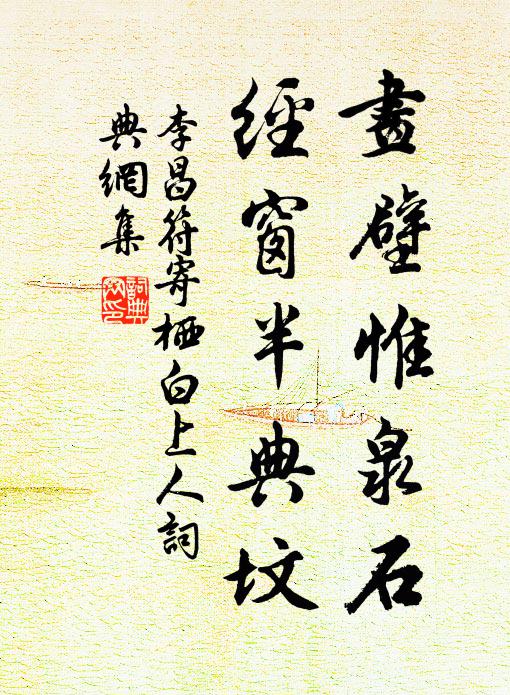 畫壁惟泉石
經窗半典墳
李昌符寄栖白上人詞
典網集
詞典
网印